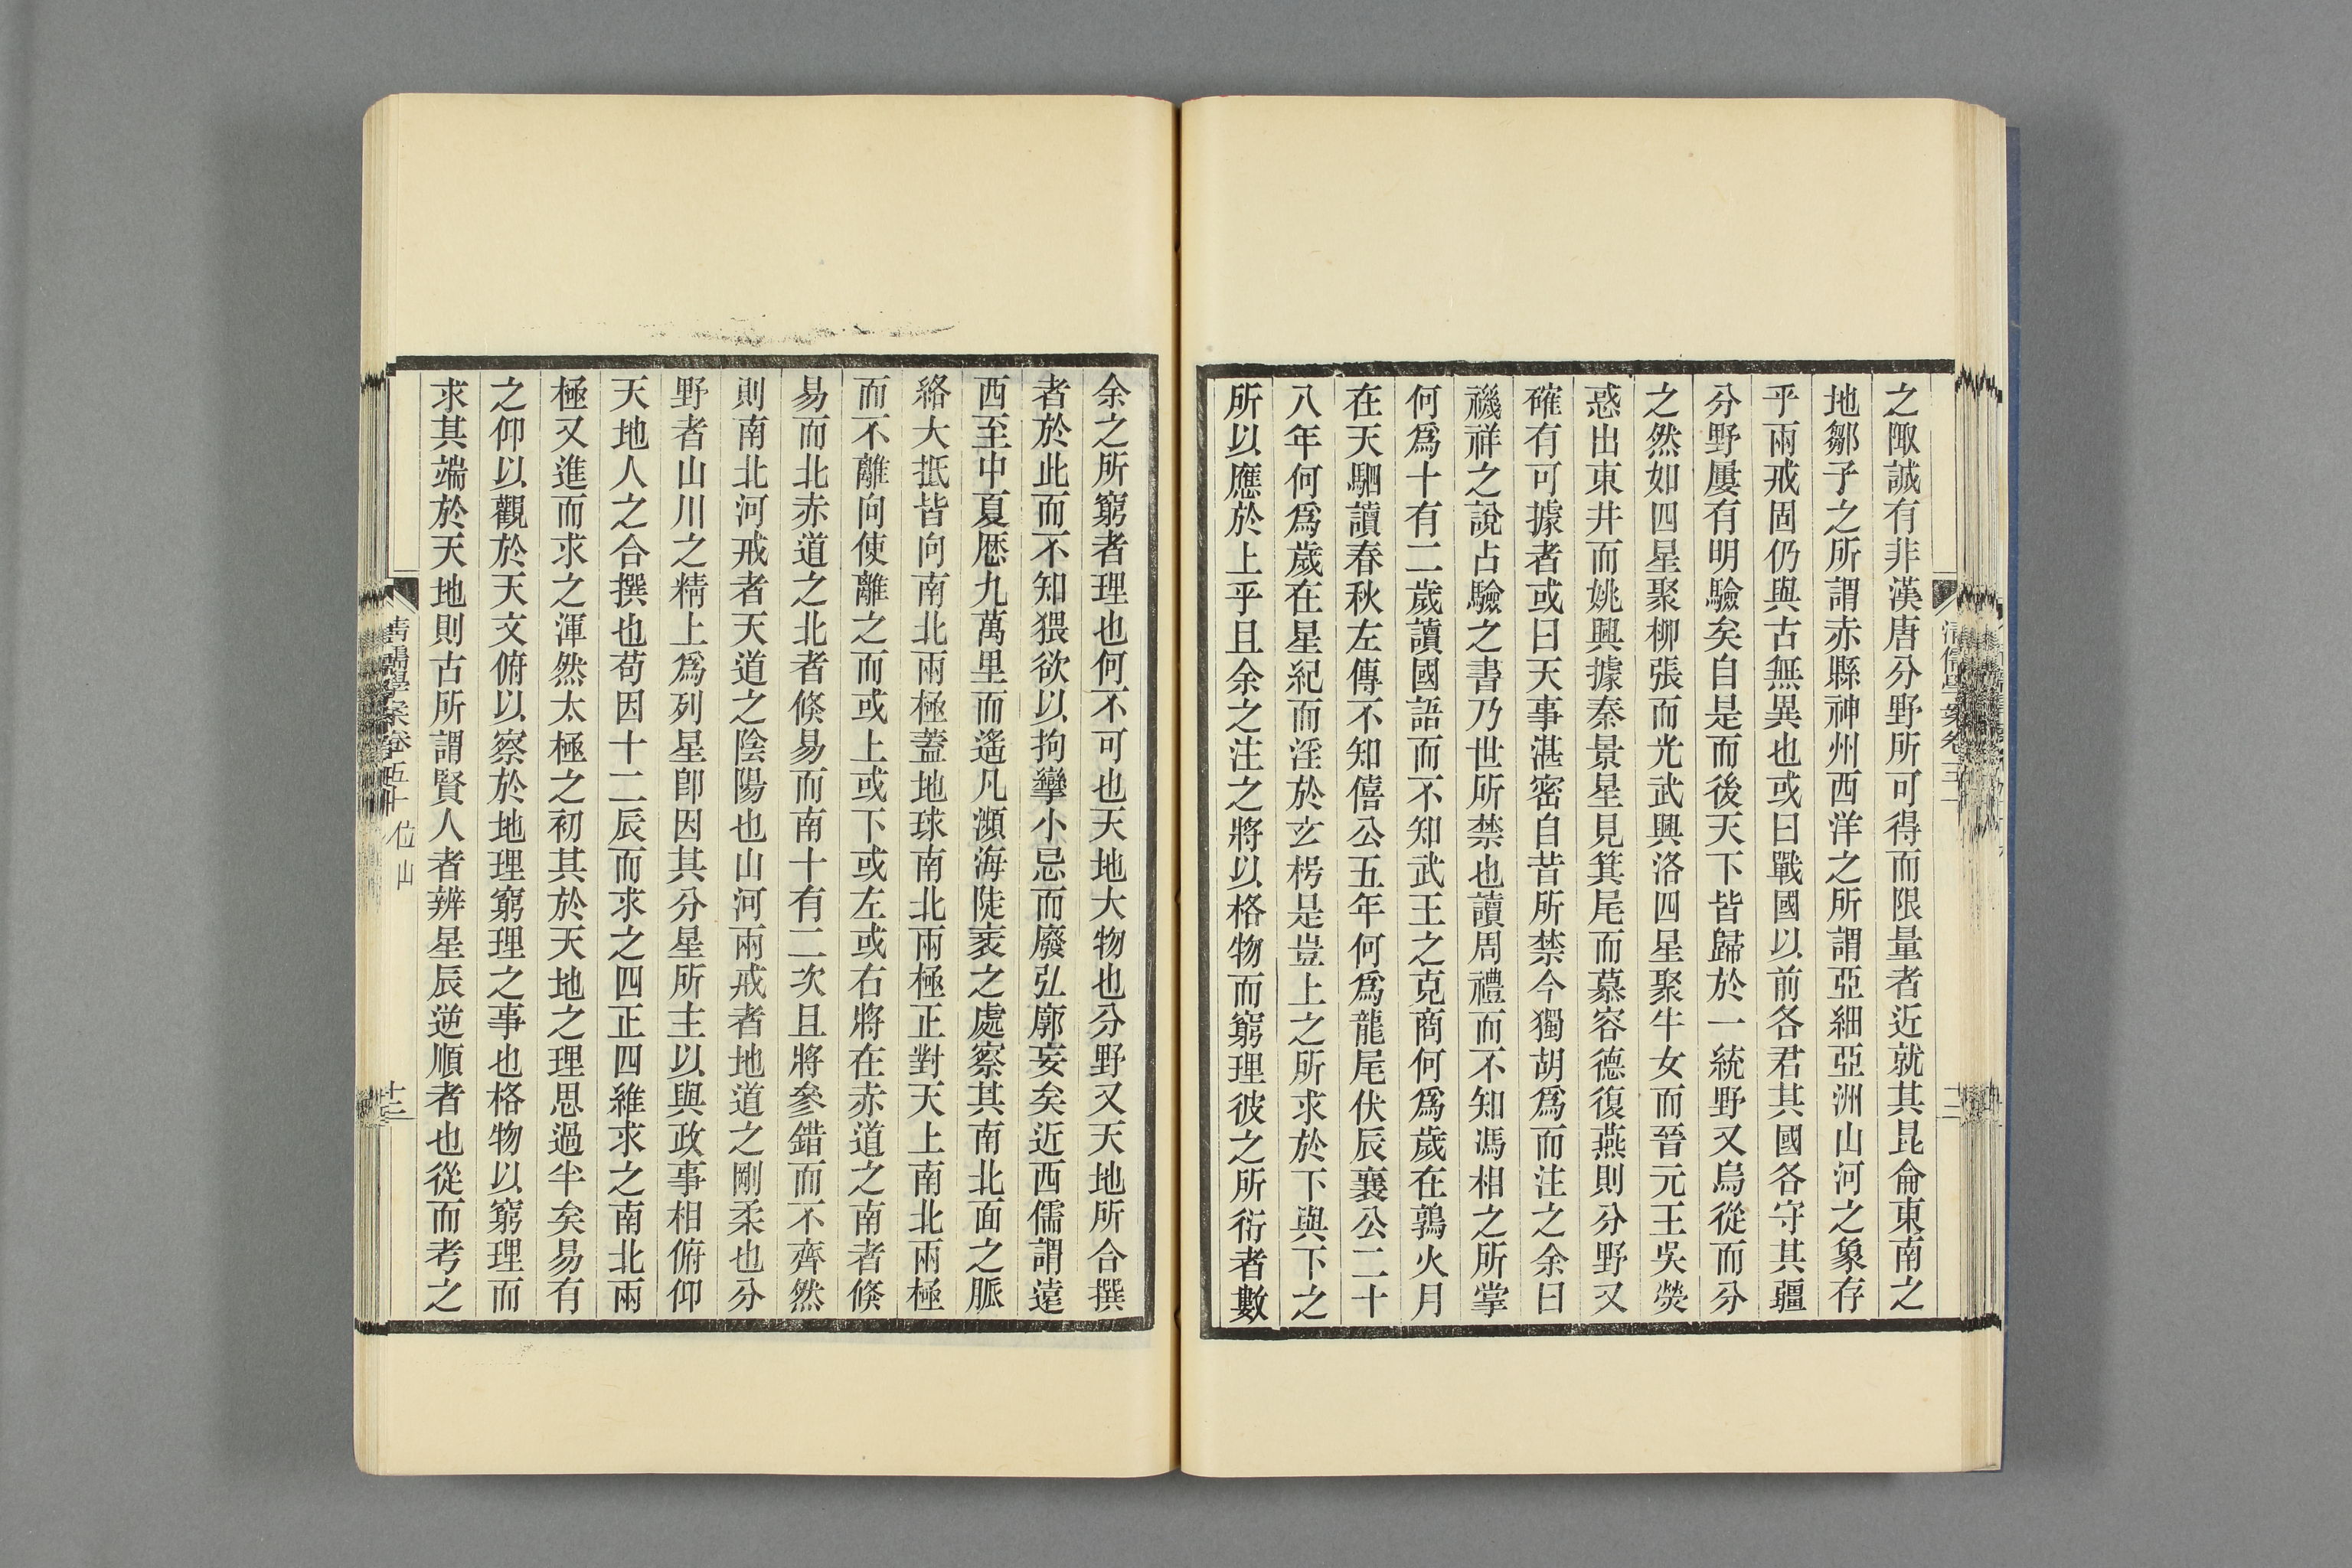 之陬誠有非漢唐分野所可得而限量者近就其昆侖東南之
地鄒子之所謂赤縣神州西洋之所謂亞細亞洲山河之象存
乎兩戒固仍與古無異也或曰戰國以前各君其國各守其疆
分野屢有明驗矣自是而後天下皆歸於一統野又烏從而分
之然如四星聚柳張而光武興洛四星聚牛女而晉元王吳熒
惑出東井而姚興據秦景星見箕尾而慕容德復燕則分野又
確有可據者或曰天事湛密自昔所禁今獨胡爲而注之余曰
禨祥之說占驗之書乃世所禁也讀周禮而不知馮相之所掌
何爲十有二歲讀國語而不知武王之克商何爲歲在鶉火月
在天駟讀春秋左傳不知僖公五年何爲龍尾伏辰襄公二十
八年何爲歲在星紀而淫於玄枵是豈上之所求於下與下之
所以應於上乎且余之注之將以格物而窮理彼之所衍者數
余之所窮者理也何不可也天地大物也分野又天地所合撰
者於此而不知猥欲以拘攣小忌而廢弘廓妄矣近西儒謂遠
西至中夏歷九萬里而遙凡瀕海陡衺之處察其南北面之脈
絡大抵皆向南北兩極蓋地球南北兩極正對天上南北兩極
而不離向使離之而或上或下或左或右將在赤道之南者倐
易而北赤道之北者倐易而南十有二次且將參錯而不齊然
則南北河戒者天道之陰陽也山河兩戒者地道之剛柔也分
野者山川之精上爲列星卽因其分星所主以與政事相俯仰
天地人之合撰也苟因十二辰而求之四正四維求之南北兩
極又進而求之渾然太極之初其於天地之理思過半矣易有
之仰以觀於天文俯以察於地理窮理之事也格物以窮理而
求其端於天地則古所謂賢人者辨星辰逆順者也從而考之
清儒學案卷五十 位山
十三